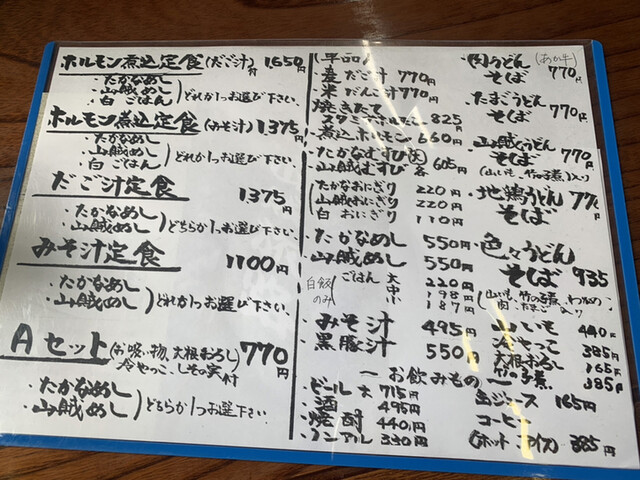 ホルモン煮込定食(だご汁)付 1650円
・たかなめし
・山賊めし
・白ごはん
どれか1つお選び下さい。
ホルモン煮込定食(みそ汁)1,375円
・たかなめし
・山賊めし
・白ごはん
どれか1つお選び下さい。
だご汁定食 1375円
・たかなめし
・山賊めし
どちらか1つお選び下さい。
みそ汁定食 1100円
・たかなめし
・山賊めし
どれか1つお選び下さい。
Aセット(お吸い物、大根おろし 冷やっこ、しその実付) 770円
・たかなめし
・山賊めし
どちらか1つお選び下さい。
(単品)
・だご汁 770円
・米だんご汁 770円
・焼きたて
スタミナホルモン 825円
・煮込ホルモン 660円
・たかなむすび
・山賊むすび
各605円
・たかなおにぎり 220円
・山賊おにぎり 220円
・白おにぎり 110円
・たかなめし 550円
・山賊めし 550円
白飯のみ
ごはん
大 220円
中 198円
小 187円
みそ汁 495円
・黒豚汁 550円
ー お飲みもの ー
・ビール大 715円
・酒 495円
・焼酎 440円
・ノンアル 330円
肉うどん(あか牛)
そば 770円
たまごうどん
そば 770円
山賊うどん
そば 770円
(山いも、竹の子煮)入り
・地鶏うどん
そば 770
色々うどん
そば 935
(山いも、竹の子煮、わかめ、
肉、たまご入り
山いも 440円
冷やっこ 385円
大根おろし 165円
竹の子煮 385円
缶ジュース 165円
コーヒー
(ホット アイス) 385円